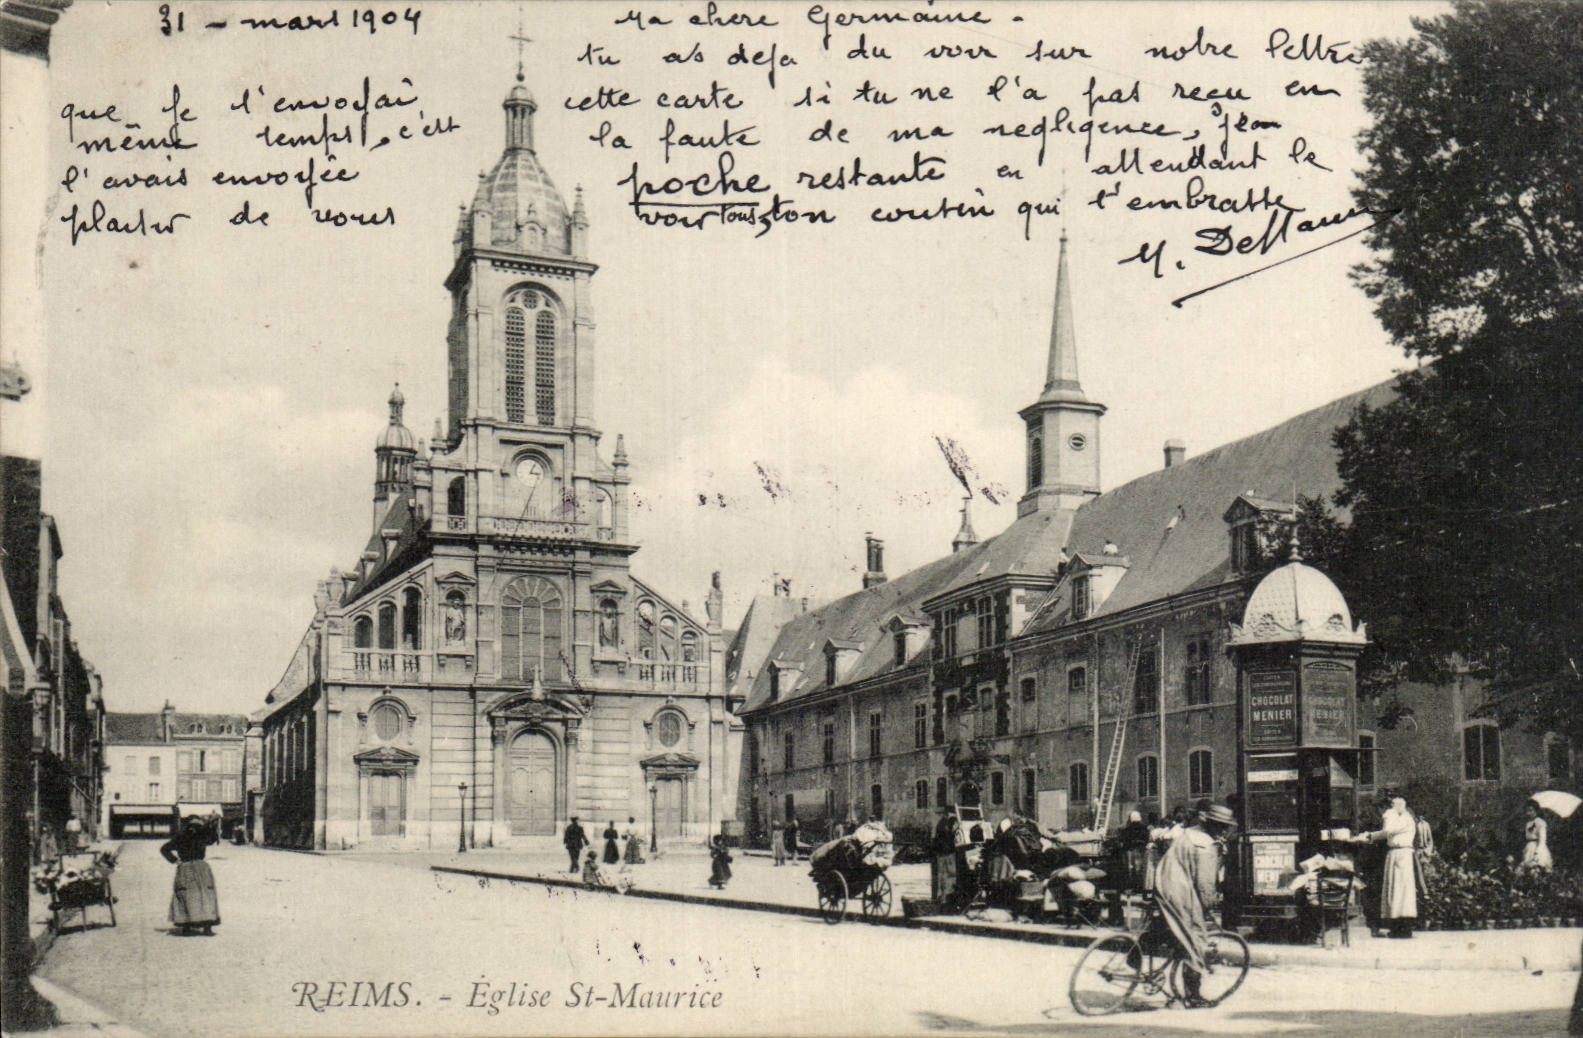 31 - mars 1904
Ma chere Germaine -
tu as deja du voir sur notre lettre
que je t'envoyai cette carte si tu ne l'a pas recu en
même temps, c'est la faute de ma negligence, j'en
l'avais envoyée poche restante en attendant le
plaisir de vous voir tous, ton cousin qui t'embrasse
M.
CHOCOLAT
MENIER
CHOCOLAT
MENIER
CHOCOLAT
MENIER
REIMS. - Église St-Maurice